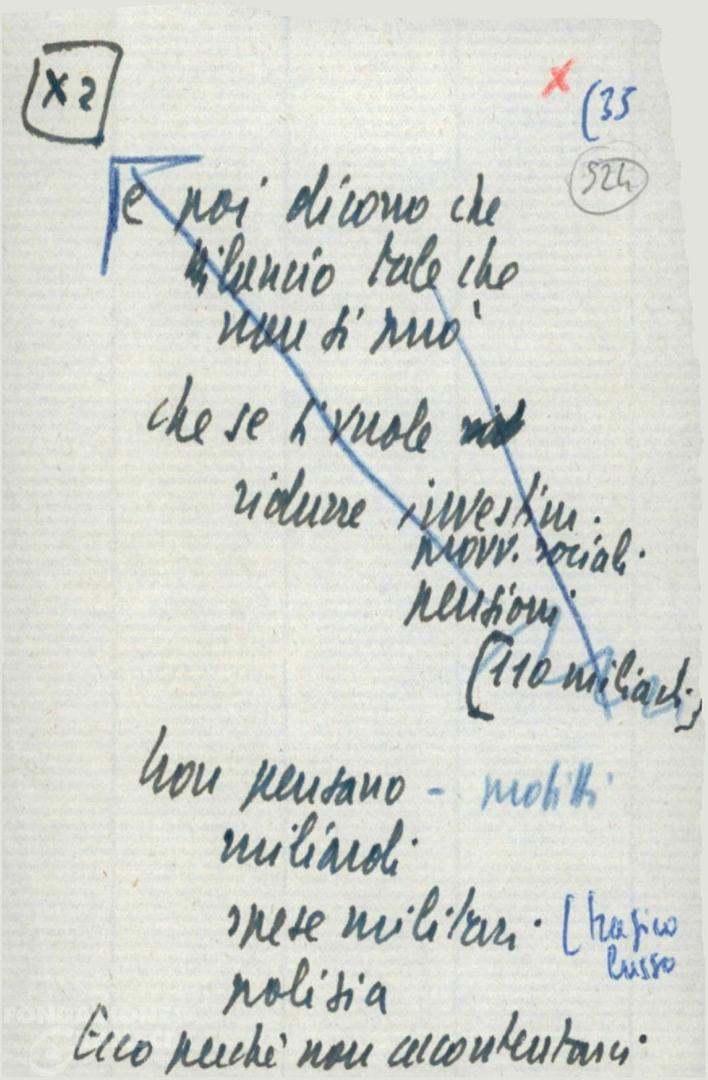 X2
X
(35
524
e poi dicono che
bilancio tale che
non si può
che se si vuole
ridurre investim.
provv. sociali.
pensioni
(110 miliardi)
Non pensano - profitti
miliardi
spese militari. (tragico
lusso
polizia
Ecco perché non accontentarsi.